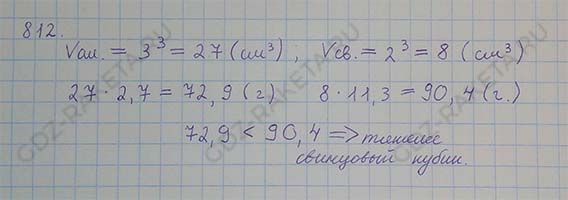 812.
Vал. = 3³ = 27 (см³) ; Vсв. = 2³ = 8 (см³)
27 · 2,7 = 72,9 (г) 8 · 11,3 = 90,4 (г.)
72,9 < 90,4 => тяжелее
свинцовый кубик.
GDZ-RAKETA.RU